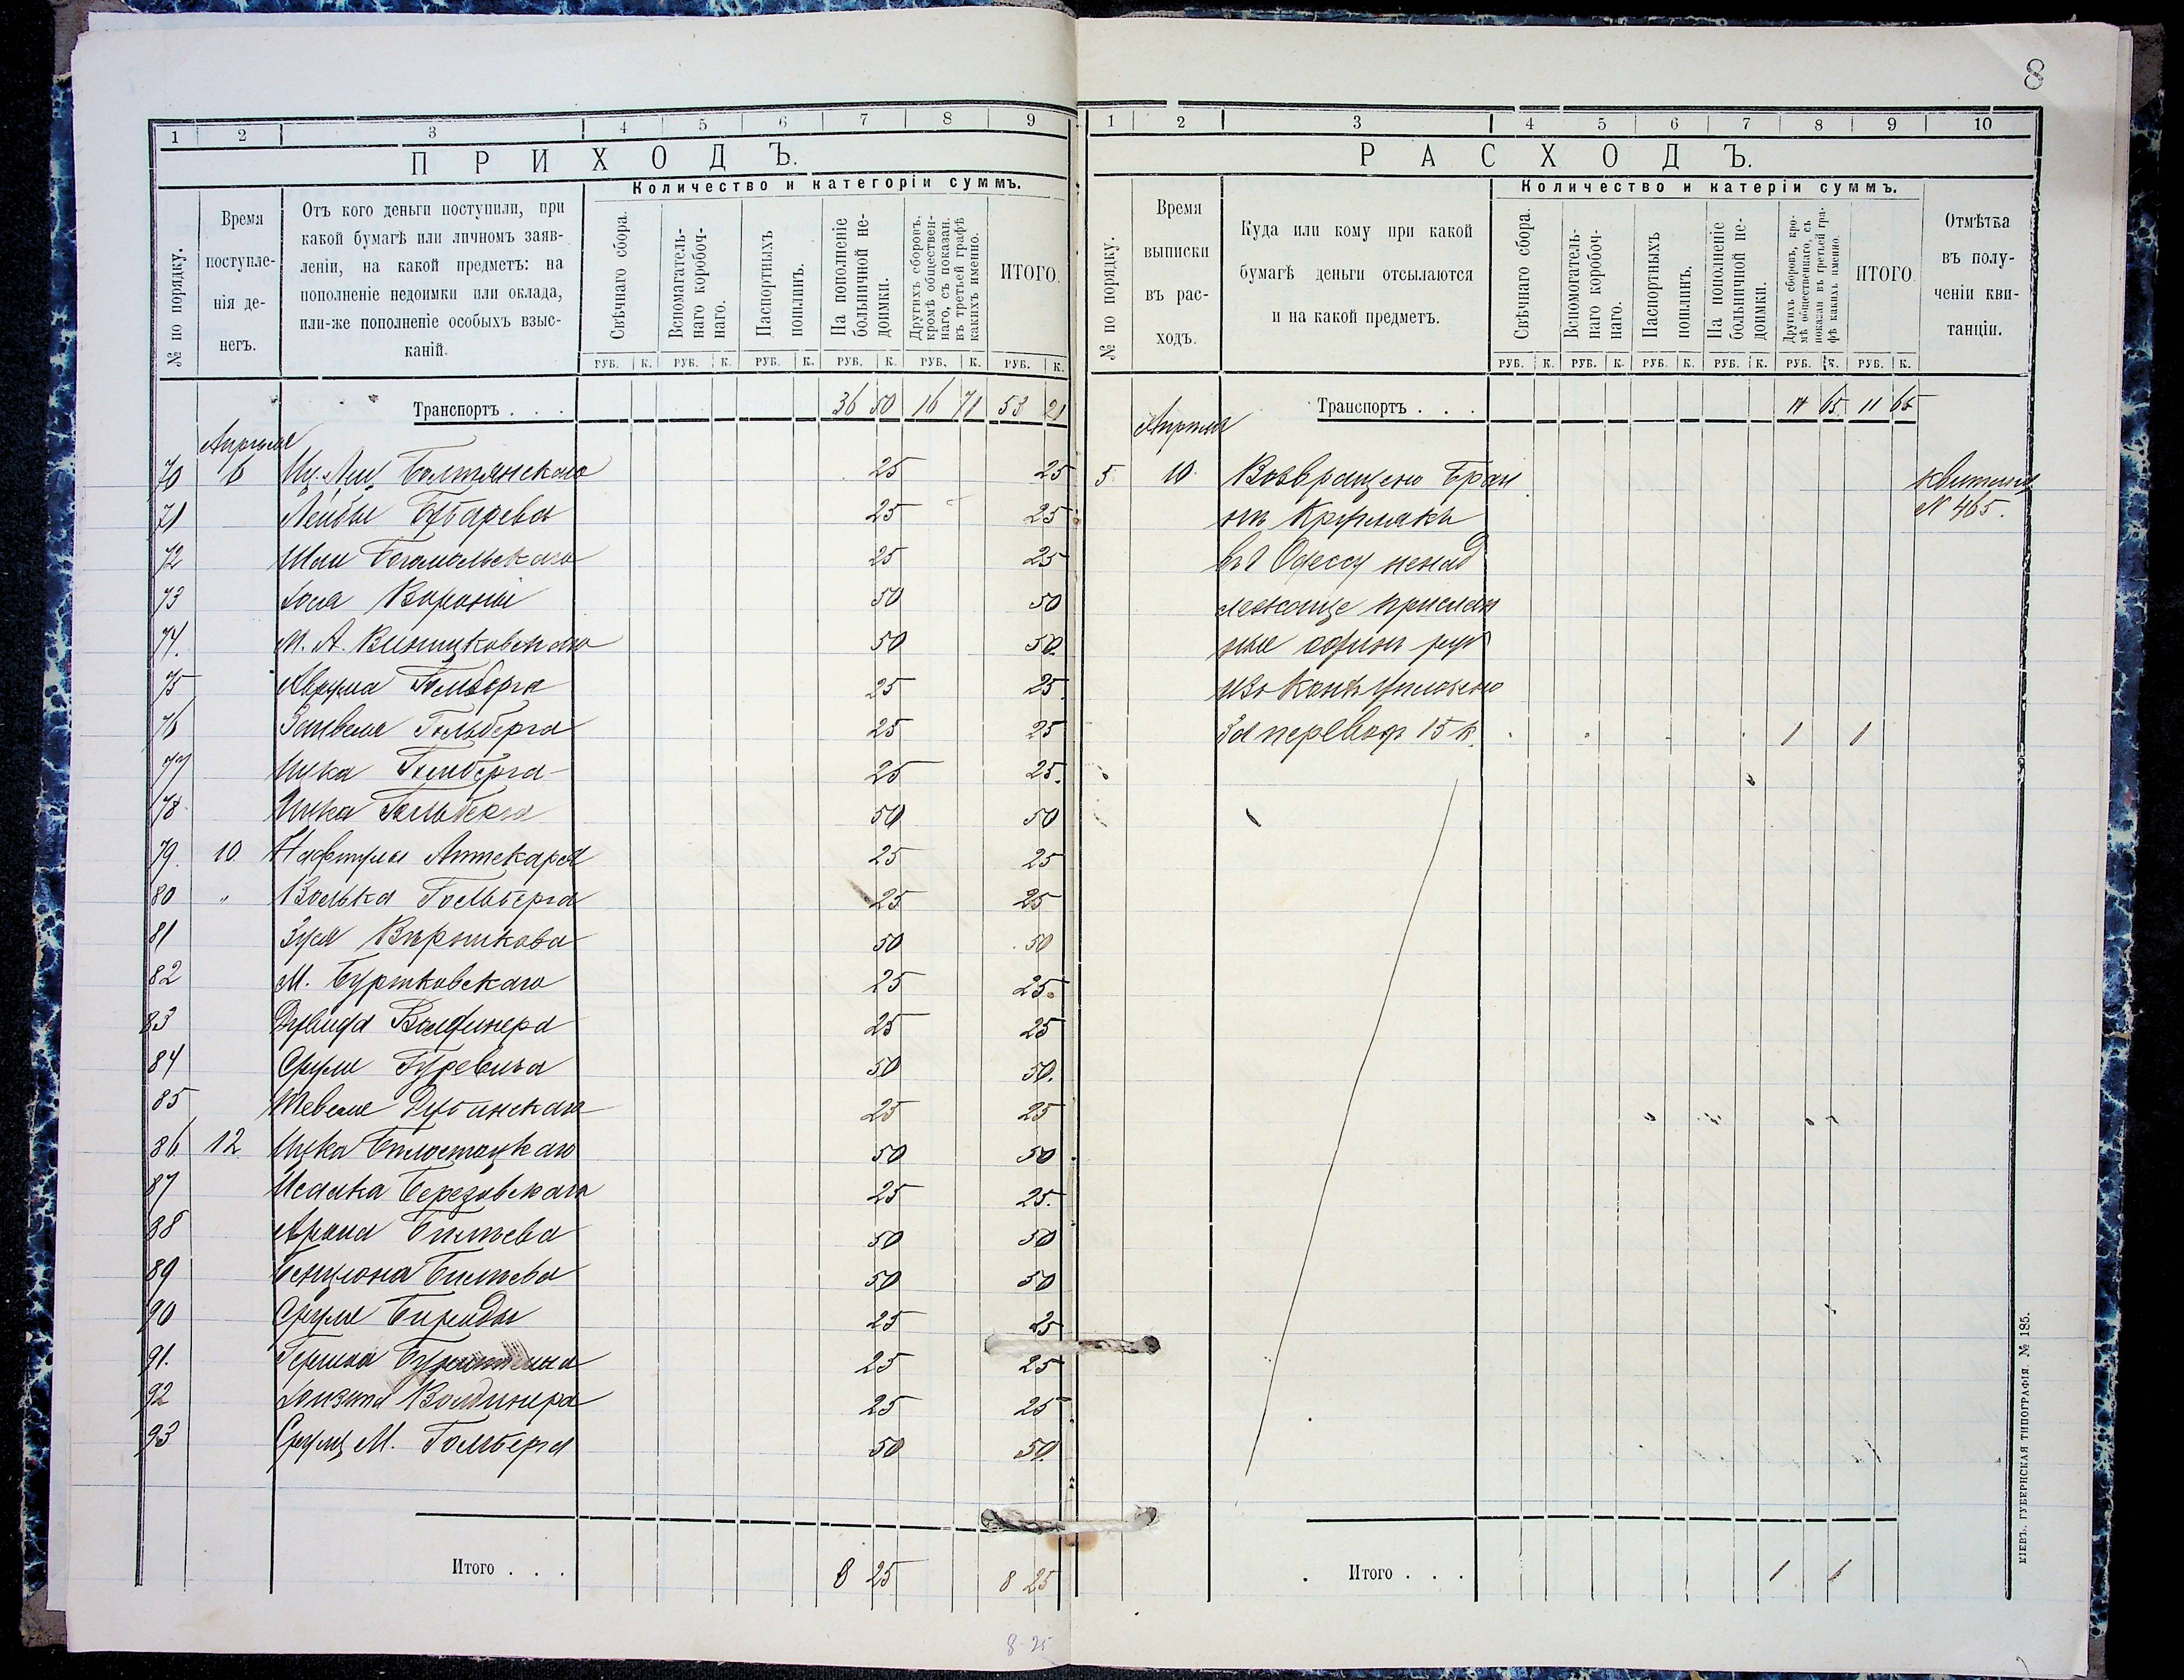 8
1 2 3 4 5 6 7 8 9
ПРИХОДЪ.
Количество и категоріи суммъ.
№ по порядку.
Время
поступле-
нія де-
негъ.
Отъ кого деньги поступили, при
какой бумагѣ или личномъ заяв-
леніи, на какой предметъ: на
пополненіе недоимки или оклада,
или-же пополненіе особыхъ взыс-
каній.
Свѣчнаго сбора.
Вспомагатель-
наго коробоч-
наго.
Паспортныхъ
пошлинъ.
На пополненіе
больничной не-
доимки.
Другихъ сборовъ,
кромѣ обществен-
наго, съ показан.
въ третьей графѣ
какихъ именно.
ИТОГО.
РУБ. К. РУБ. К. РУБ. К. РУБ. К. РУБ. К. РУБ. К.
Транспортъ . . . 36 50 16 71 53 21
Апрѣля
70 6 Болтянскаго 25 25
71 Лейбы 25 25
72 Богопольскаго 25 25
73 50 50
74. М. А. 50 50.
75 Аврума Гольберга 25 25
76 Гольберга 25 25
77 Ицка Гольберга 25 25.
78 Ицка Гольберга 50 50
79. 10 Нафтулы Аптекаря 25 25
80 " Волька Гольберга 25 25
81 Зуся 50 50
82 М. Буртковскаго 25 25.
83 Давида Волдинера 25 25
84 Сруля Гуревича 50 50.
85 Шевеля Дубинскаго 25 25
86 12 Ицка Бѣлостоцкаго 50 50
87 Исаака Березовскаго 25 25.
88 Арона 50 50
89 Бенціона 50 50
90 Сруля 25 25
91. Гершка 25 25
92 Волдинера 25 25
93 М. Гольберга 50 50.
Итого . . . 8 25 8 25
8-25
1 2 3 4 5 6 7 8 9 10
РАСХОДЪ.
Количество и катеріи суммъ.
№ по порядку.
Время
выписки
въ рас-
ходъ.
Куда или кому при какой
бумагѣ деньги отсылаются
и на какой предметъ.
Свѣчнаго сбора.
Вспомогатель-
наго коробоч-
наго.
Паспортныхъ
пошлинъ.
На пополненіе
больничной не-
доимки.
Другихъ сборовъ, кро-
мѣ общественнаго, съ
показан въ третьей гра-
фѣ какихъ именно.
ИТОГО
Отмѣтка
въ полу-
ченіи кви-
танціи.
РУБ. К. РУБ. К. РУБ. К. РУБ. К. РУБ. К. РУБ. К.
Транспортъ . . . 11 65 11 65
Апрѣля
5 10. Возвращено
N 465.
въ Одессу ненад
лежаще прислан
ные одинъ руб
изъ коихъ уплачено
за переводъ 15 к. 1 1
Итого . . . 1 1
КІЕВЪ. ГУБЕРНСКАЯ ТИПОГРАФІЯ. № 185.